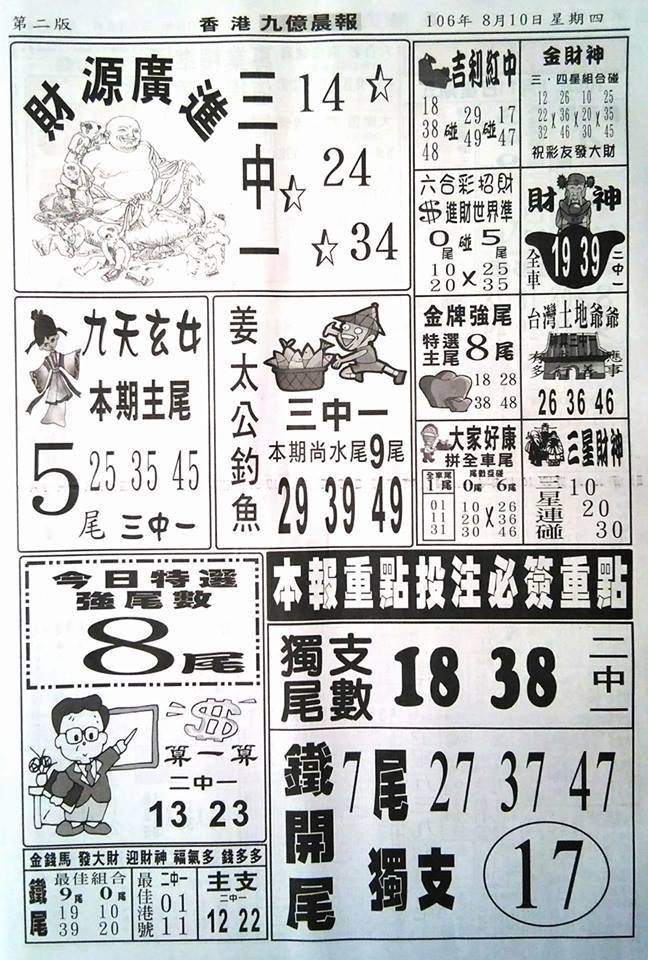 第二版 香港九億晨報 106年 8月10日星期四
財源廣進
三中一
14
24
34
吉利紅中
18 29 17
38碰49碰47
48
金財神
三．四星組合碰
12 26 10 25
22x36x20x35
32 46 30 45
祝彩友發大財
六合彩招財
$進財世界準
0尾碰5尾
10 x 25
20 35
財神
全車
19 39
二中一
九天玄女
本期主尾
5尾
25 35 45
三中一
姜太公釣魚
三中一
本期尚水尾9尾
29 39 49
金牌強尾
特選主尾 8尾
18 28
38 48
台灣土地爺爺
有多
應事
26 36 46
大家好康
拼全車尾
全車尾
1尾 0尾 6尾
01 10 26
11 20 x 36
31 30 46
三星財神
三星連碰
10
20
30
今日特選
強尾數
8尾
$
算一算
二中一
13 23
本報重點投注必簽重點
獨支
尾數
18 38
二中一
鐵開尾
7尾 27 37 47
獨支 17
金錢馬 發大財 迎財神 福氣多 錢多多
鐵尾
最佳組合
9尾 0尾
19 10
39 20
最佳港號
二中一
01
11
主支
二中一
12 22